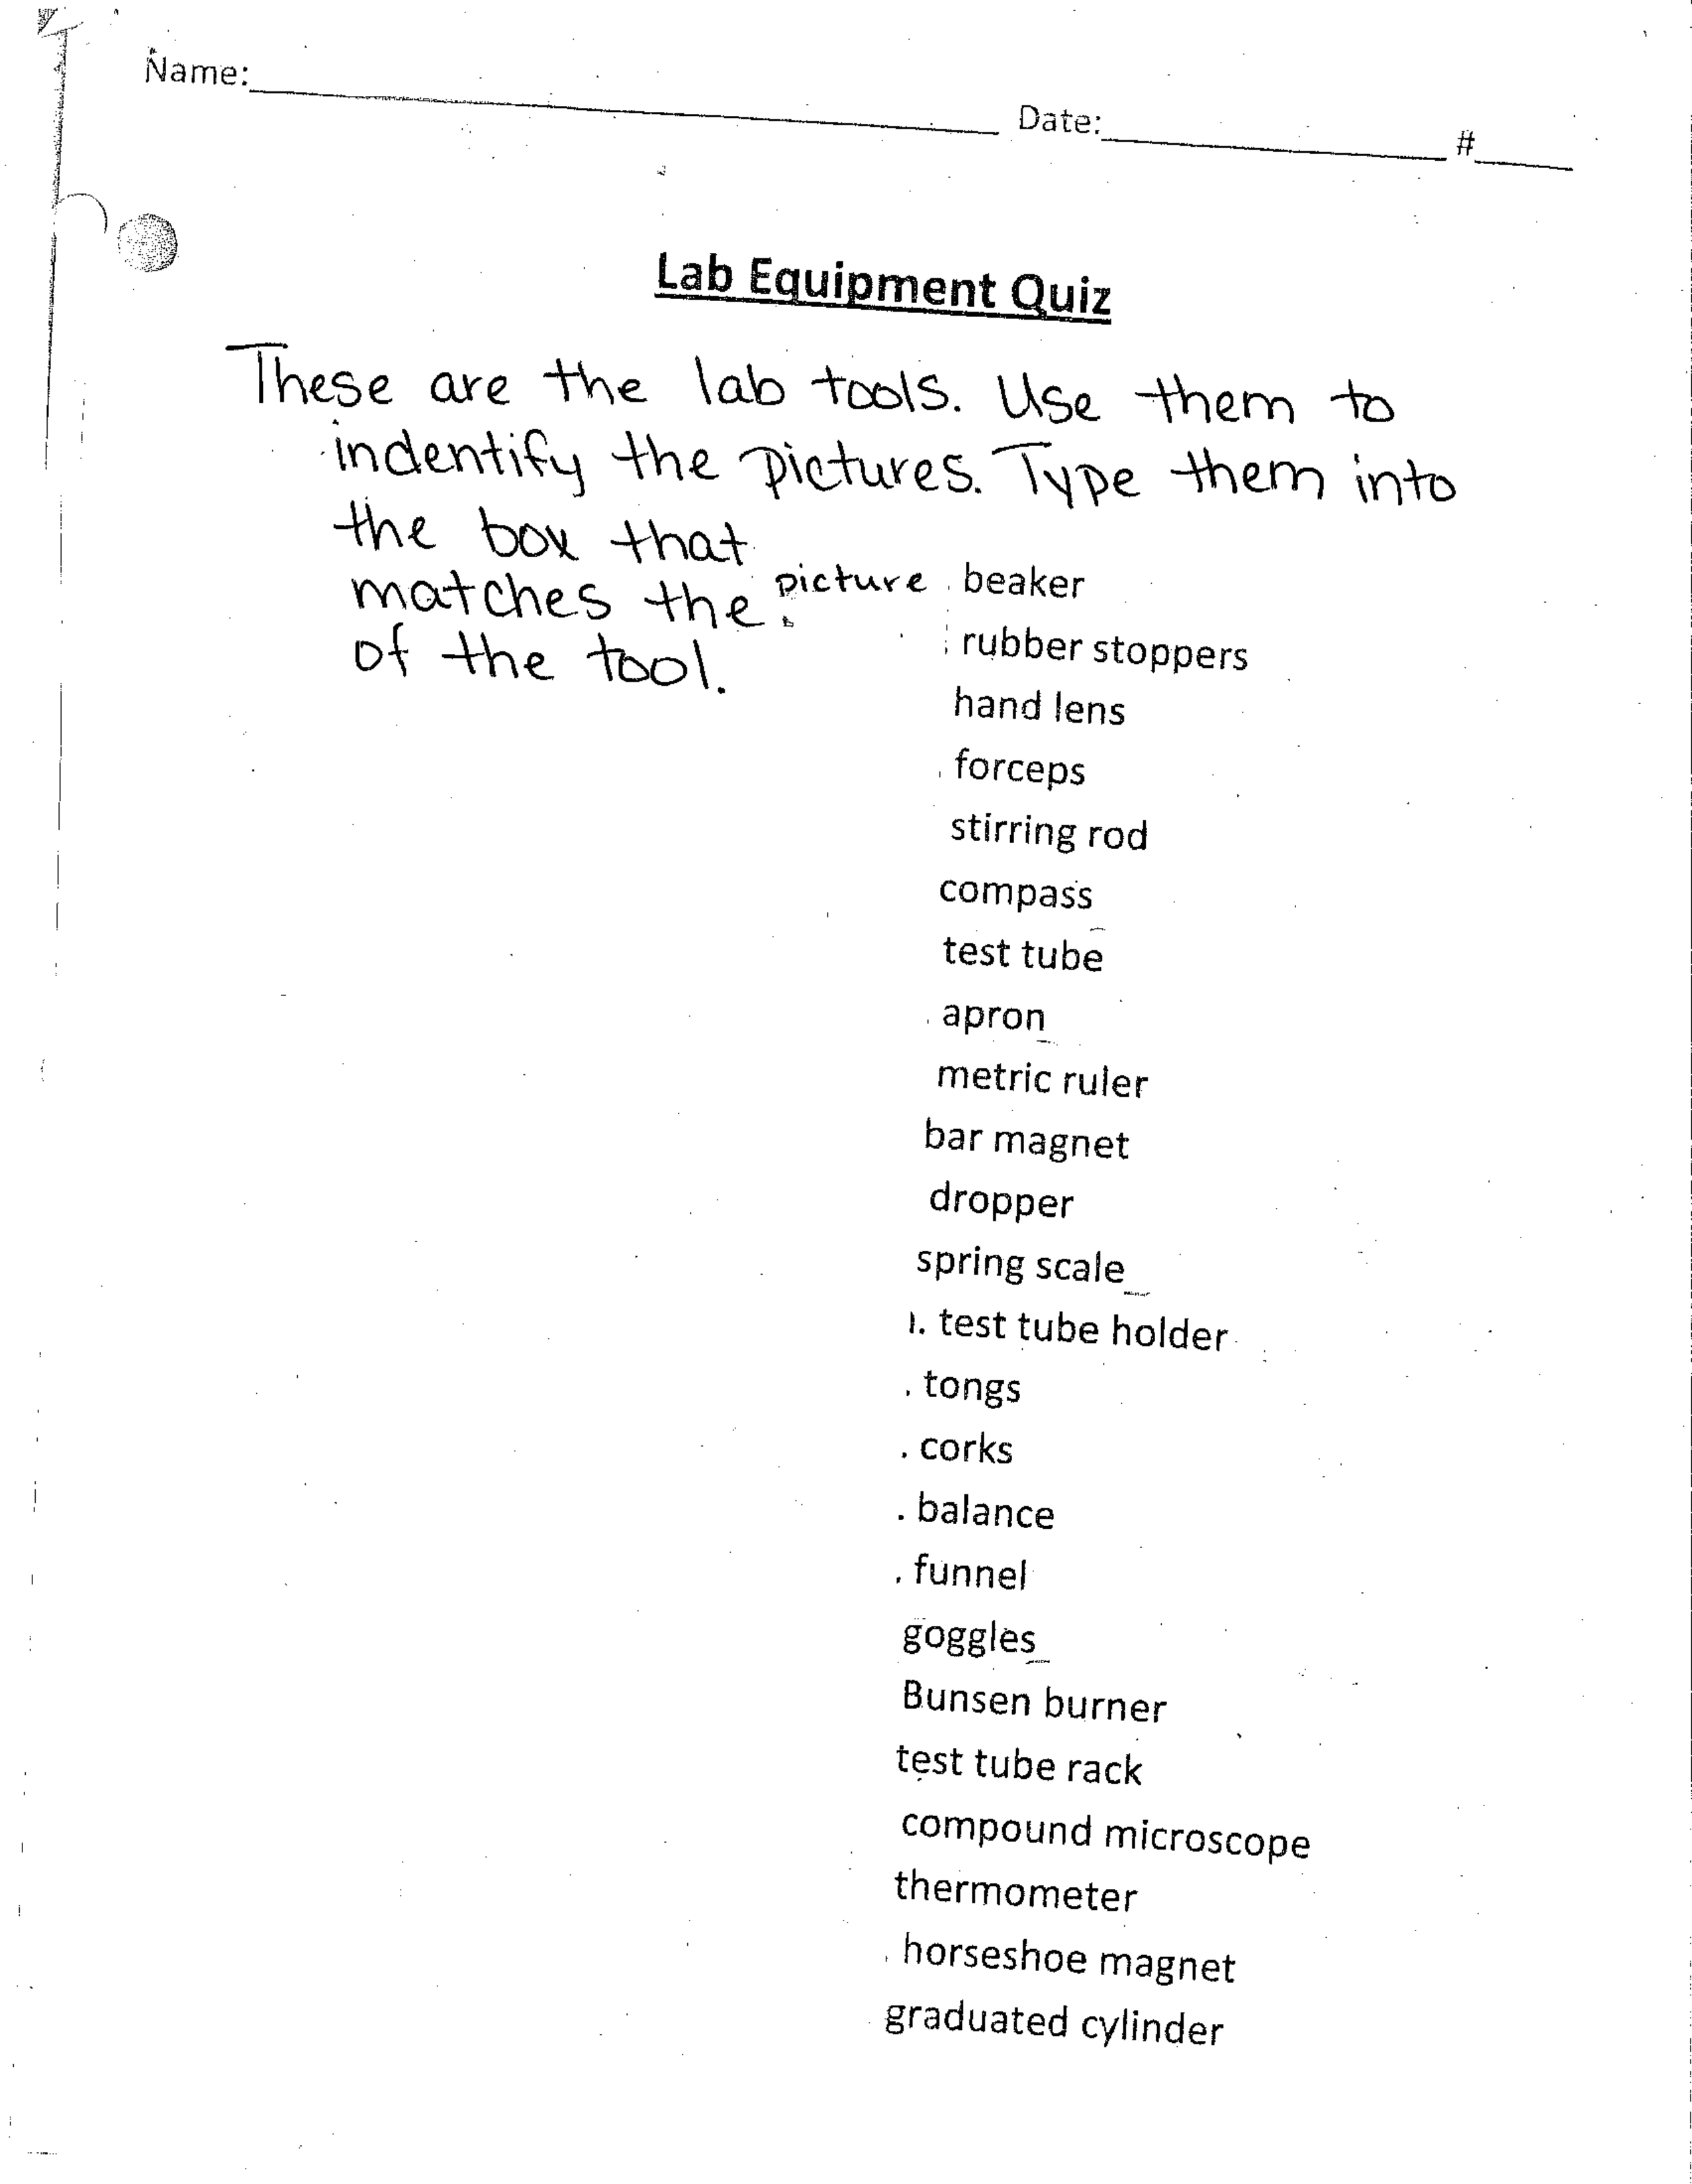 Name: Date: #
Lab Equipment Quiz
These are the lab tools. Use them to
indentify the pictures. Type them into
the box that
matches the picture
of the tool.
beaker
rubber stoppers
hand lens
forceps
stirring rod
compass
test tube
apron
metric ruler
bar magnet
dropper
spring scale
. test tube holder
. tongs
. corks
. balance
. funnel
goggles
Bunsen burner
test tube rack
compound microscope
thermometer
horseshoe magnet
graduated cylinder